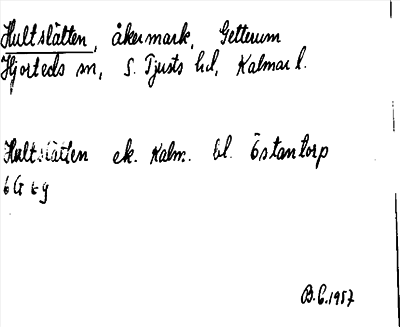 Hultslätten, åkermark, Getterum
Hjorteds sn, S. Tjusts hd, Kalmar l.
Hultslätten ek. Kalm. bl. Östantorp
6G 6g
B.C. 1957